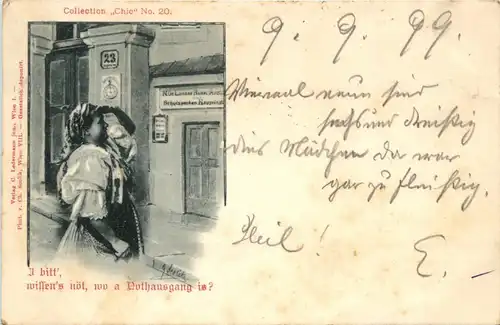 Collection „Chic“ No. 20.
9. 9. 99.
23
Vieraal neun sind
sechs und dreißig
dies Mädchen da war
gar zu fleißig.
Heil!
E.
Verlag C. Ledermann jun., Wien I. —
Phot. v. Ch. Scolik, Wien VIII. — Oesterreich. deponirt.
I bitt',
wissen's nöt, wo a Nothausgang is?